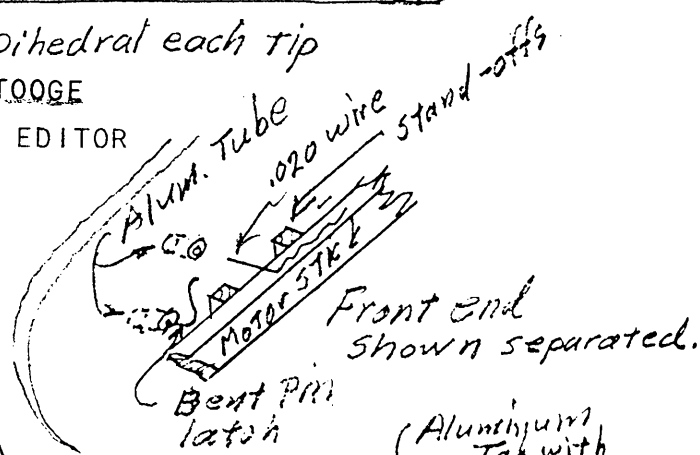 Dihedral each Tip
TOOGE
EDITOR
Alum. Tube
.020 wire
Stand-offs
Motor STK
Front end
Shown separated.
Bent Pin
latch
(Aluminum
Tab with